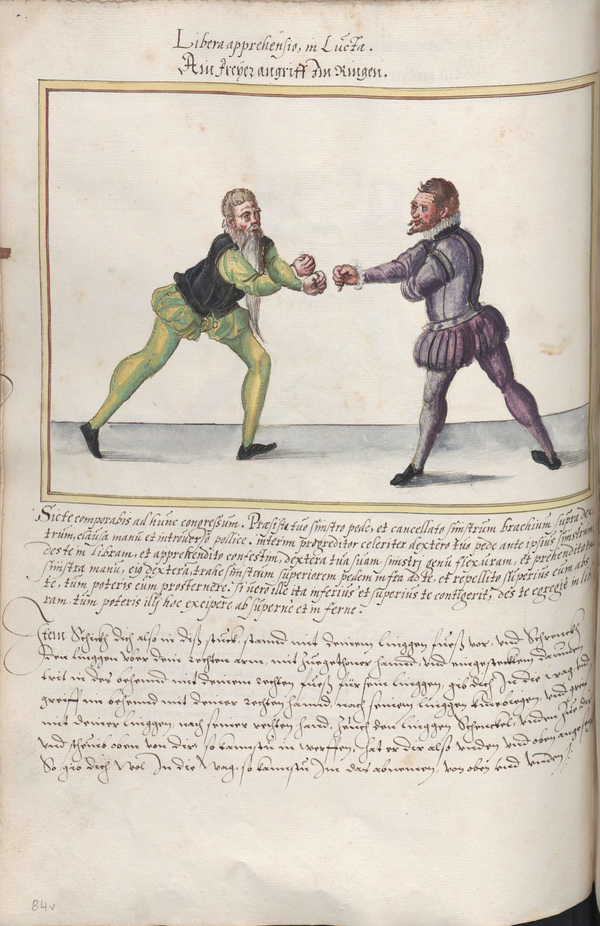 Libera apprehensio, in Lucta.
Ain freyer angriff Im Ringen.
Sic te comparabis ad hunc congressum. Præsiste tuo sinistro pede, et cancellato sinistrum brachium supra dex
trum, clausa manu et introverso pollice. interim progreditor celeriter dextero tuo pede ante ipsius sinistrum,
des te in libram, et apprehendito confestim, dextera tua suam sinistri genu flexuram, et prehendito tua
sinistra manu, eius dexteram. trahe sinistrum superiorem pedem infra ad te, et repellito superius eum abs
te, tum poteris eum prosternere. si vero ille ita inferius et superius te contigerit, des te corpore in lib
ram. tum poteris illj hoc excipere ab superne et inferne.
Item Schickh dich also in diß stuckh, stannd mit deinem linggen fueß vor, vnd Schrenckh
den linggen vber dein rechten arm, mit zuegethoner hannd, vnd eingestecktem daumen,
trit in des behennd mit deinem rechten fueß für sein linggen, gib dich In die wag vnd
greiff im behennd mit deiner rechten hannd, nach seinem linggen kniebiegen, vnd greif
mit deiner linggen nach seiner rechten hand, Zeuch den linggen Schenckel vnden zue dir
vnd scheub oben von dir, so kannstu in werffen, hat er dir also vnden vnd oben angefallen
So gib dich wol In die wag, so kannstu Im das abnemen, von oben vnd vnden.
84v